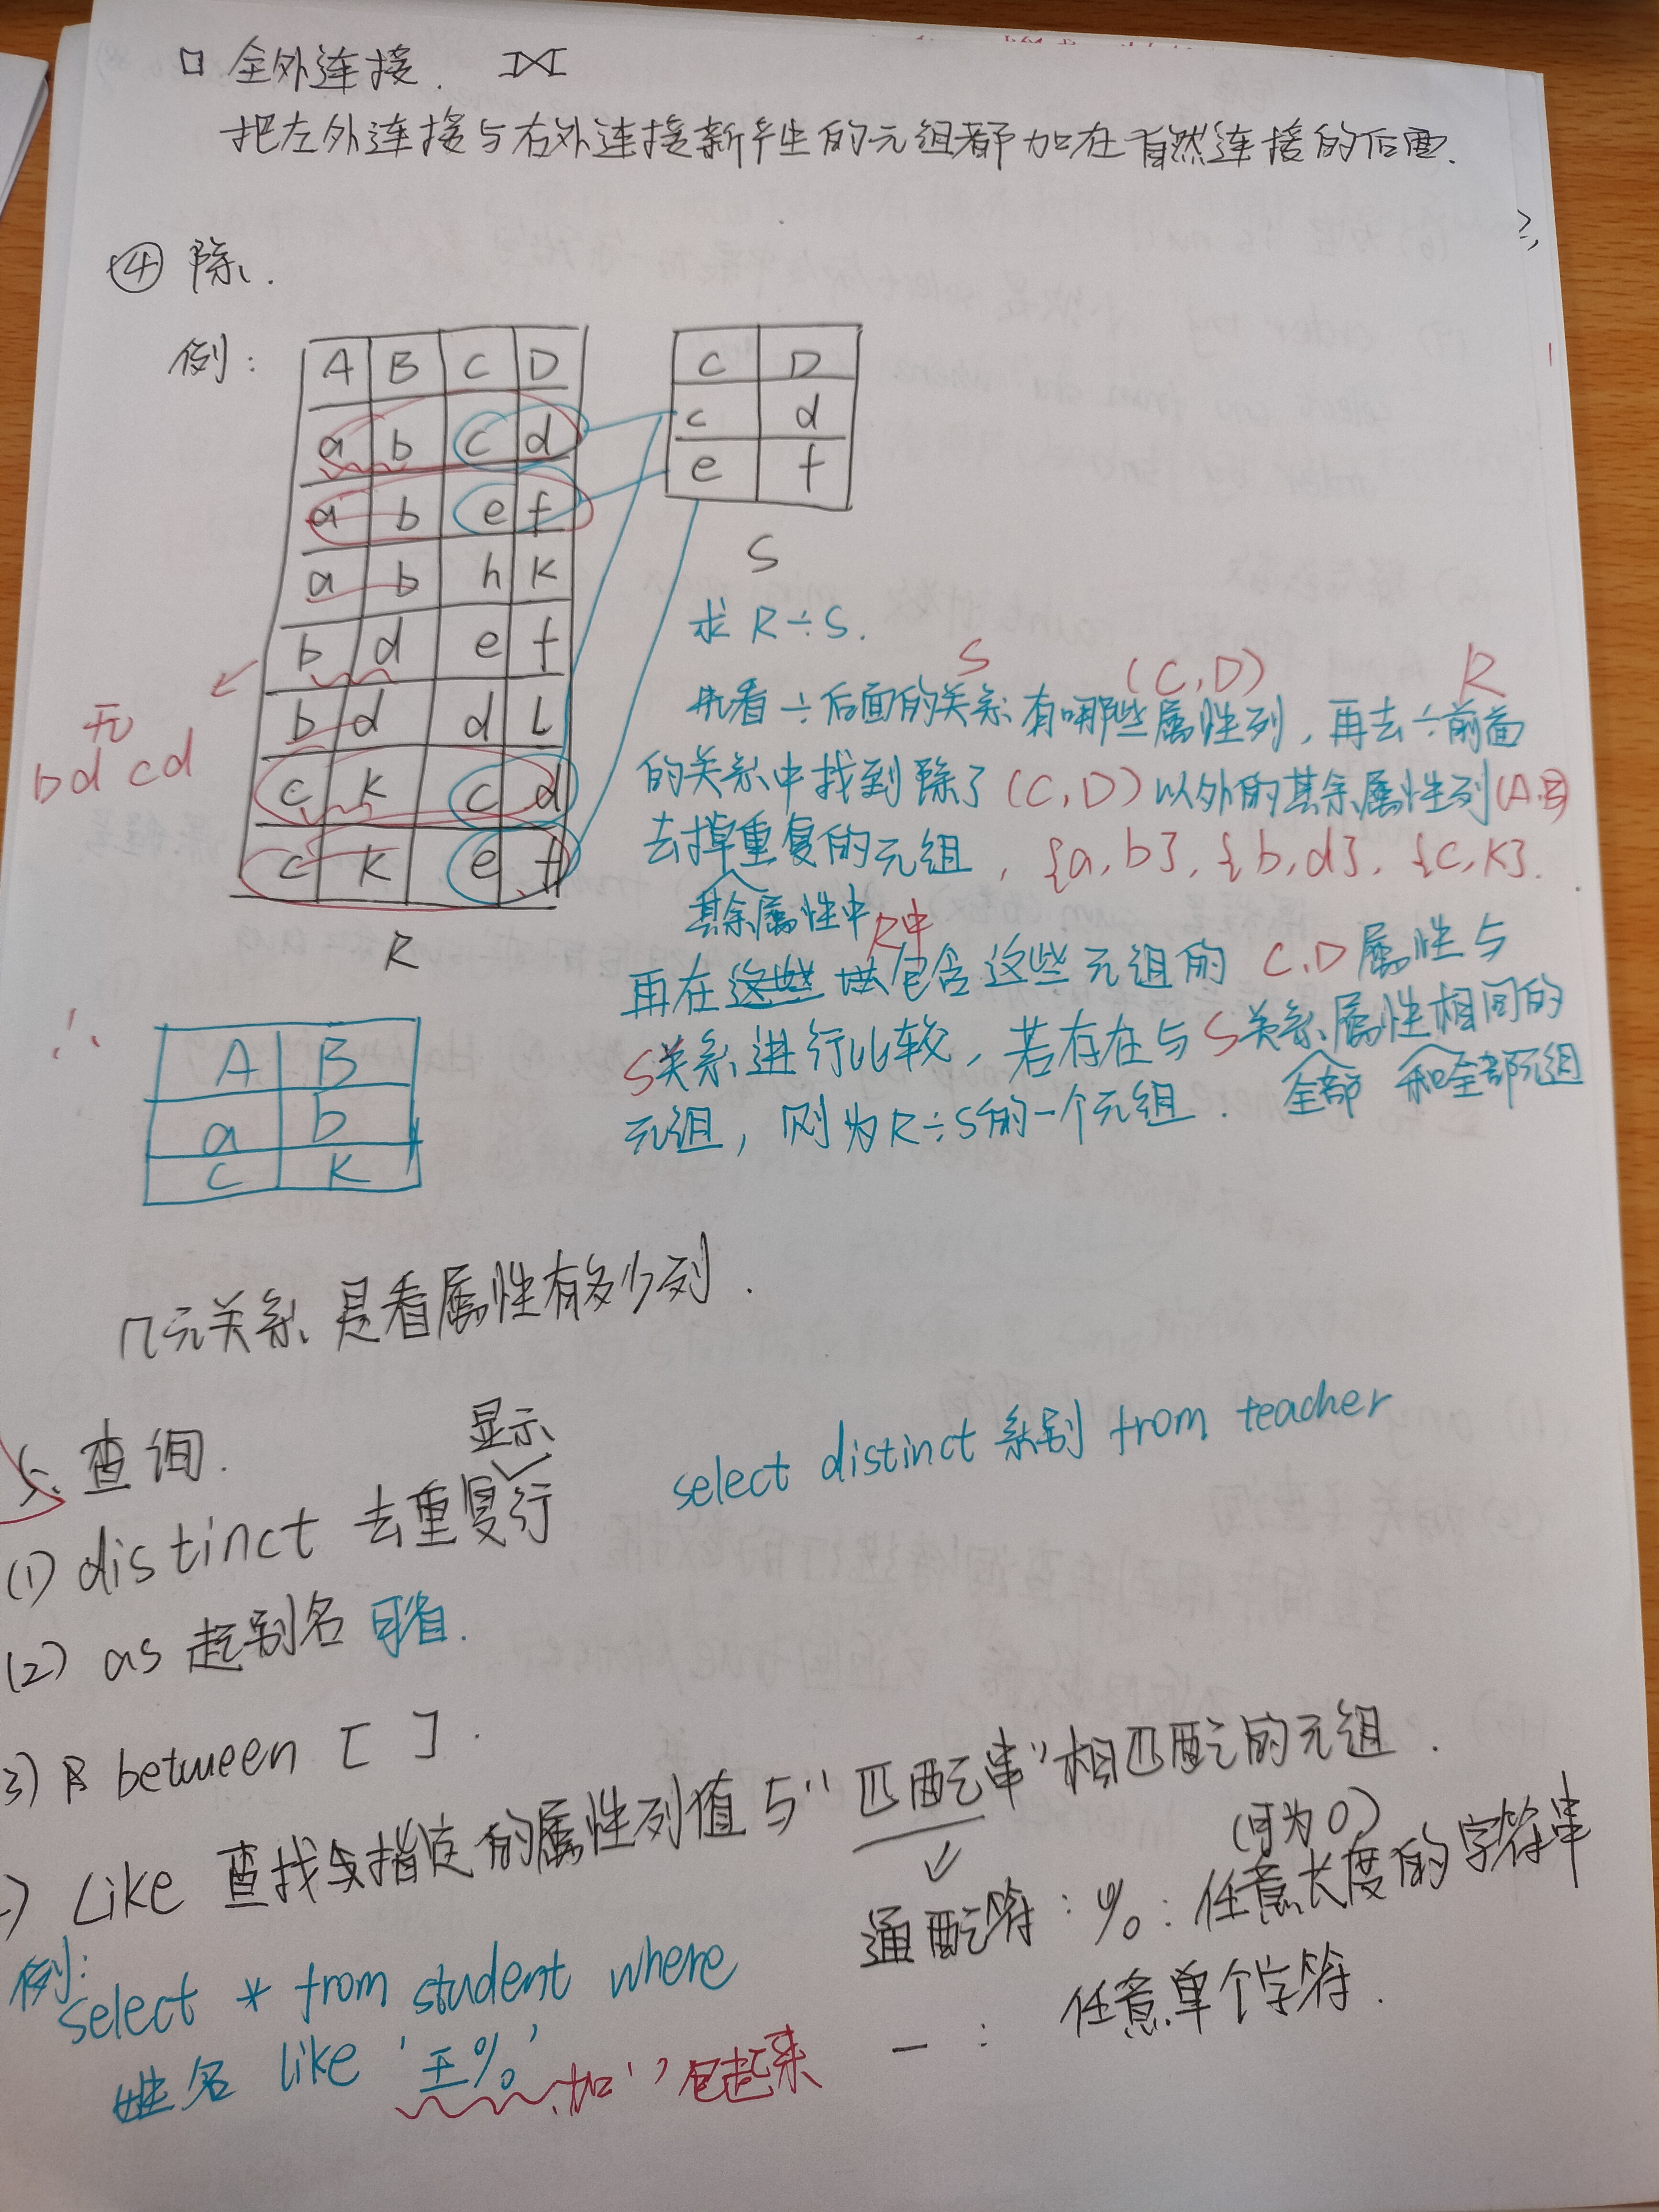 □ 全外连接. ⟗
把左外连接与右外连接新产生的元组都加在自然连接的后面.
④ 除.
例:
A B C D
a b c d
a b e f
a b h k
b d e f
b d d L
c k c d
c k e f
R
C D
c d
e f
S
无
bd cd
求 R÷S.
S (C,D) R
先看÷后面的关系有哪些属性列，再去÷前面
的关系中找到除了(C,D)以外的其余属性列(A,B)
去掉重复的元组，{a,b}，{b,d}，{c,k}.
其余属性中 R中
再在包含这些元组的 C,D属性与
S关系进行比较，若存在与S关系属性相同的
全部 和全部元组
元组，则为R÷S的一个元组.
∴
A B
a b
c k
几元关系是看属性有多少列.
5. 查询.
显示
(1) distinct 去重复行
select distinct 系别 from teacher
(2) as 起别名 可省.
3) between [ ].
) Like 查找与指定的属性列值与"匹配串"相匹配的元组.
(可为0)
通配符: %: 任意长度的字符串
_ : 任意单个字符.
例:
select * from student where
姓名 like '王%'
加' '包起来